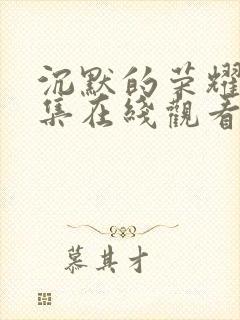 沉默的荣耀
集在綫觀看
慕其才